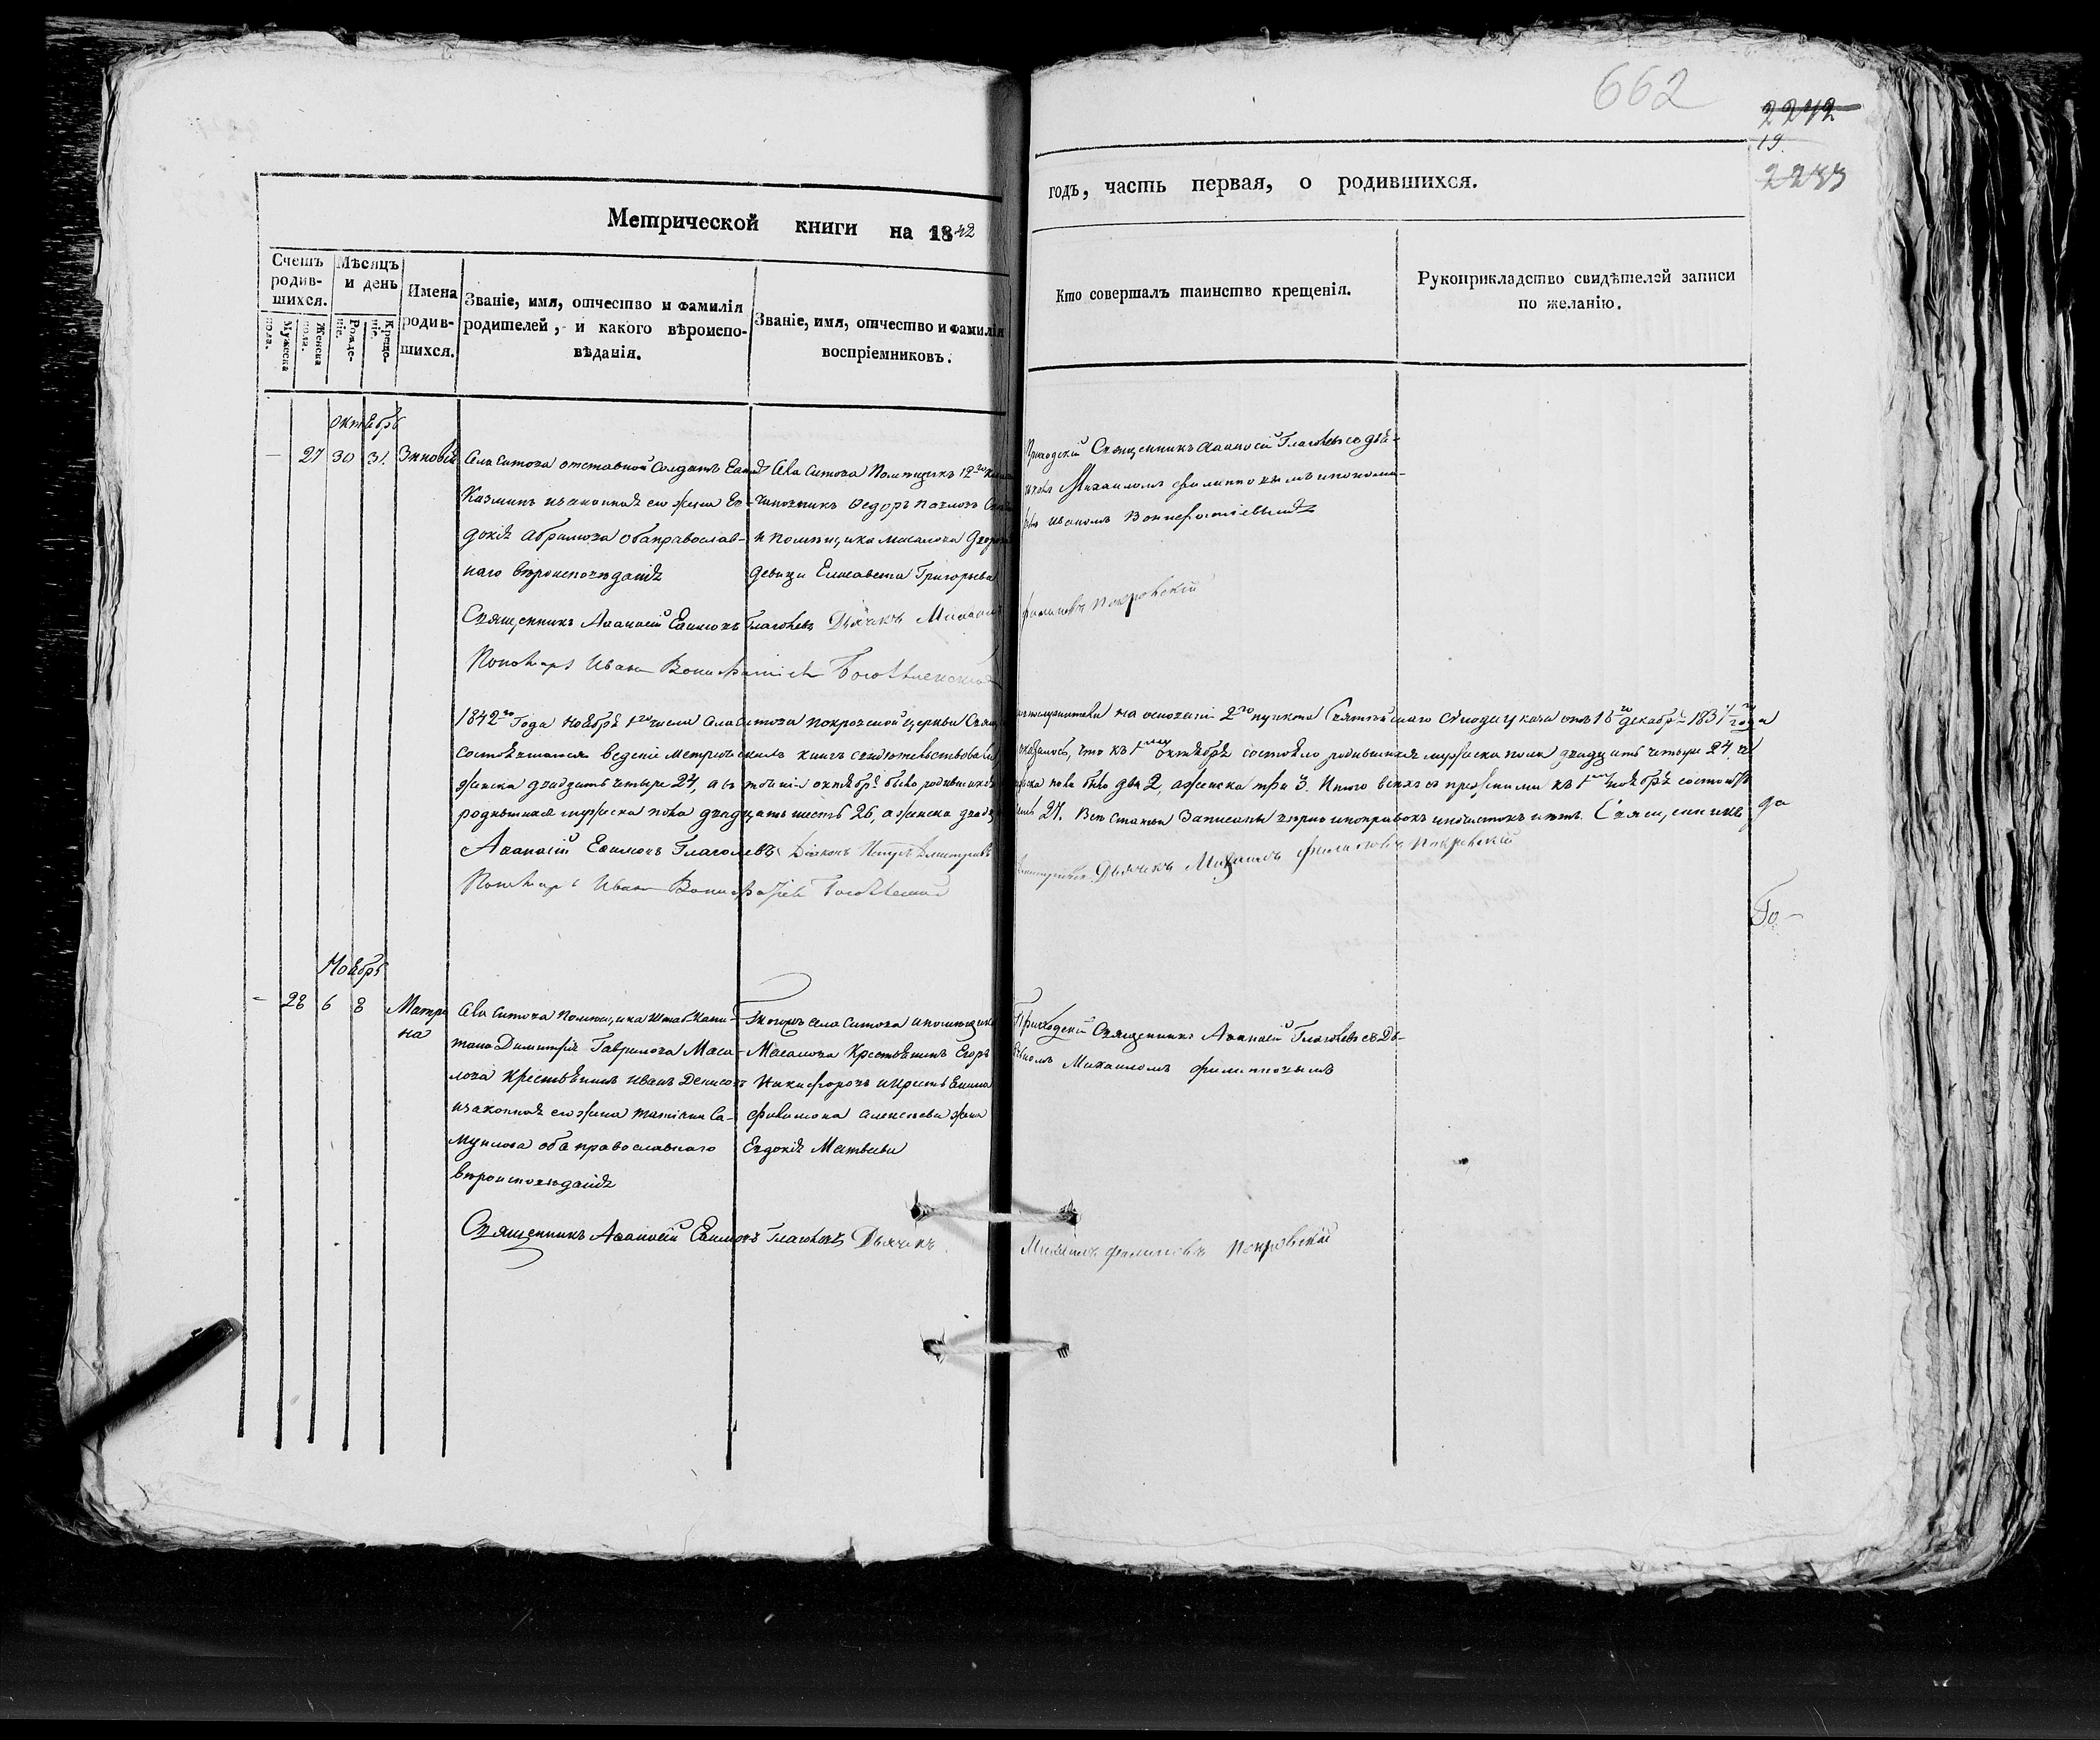 662
2242
19.
2233
Метрической книги на 1842
годъ, часть первая, о родившихся.
Счетъ родив-шихся.
Мужеска пола.
Женска пола.
Мѣсяцъ и день
Рожде-ніе.
Креще-ніе.
Имена родив-шихся.
Званіе, имя, отчество и фамилія родителей, и какого вѣроиспо-вѣданія.
Званіе, имя, отчество и фамилія воспріемниковъ.
Кто совершалъ таинство крещенія.
Рукоприкладство свидѣтелей записи по желанію.
Октябрь
27 30 31. Зиновія
Села Ситова отставной Солдатъ
Казминъ и законная его жена Ев-
докія Абрамова оба православ-
наго вѣроисповѣданія
Села Ситова Помѣщикъ 12го
чиновникъ Ѳедоръ Павловъ
и помѣщика Масалова
девица Елисавета Григорьева
Приходской Священникъ Аѳанасій Глаголевъ съ дья-
Михаиломъ Филипповымъ и понома-
ремъ Иваномъ Вонифатіевымъ
Священникъ Аѳанасій Глаголевъ Дьячекъ Михаилъ
Филиповъ Покровскій
Пономарь Иванъ
1842го Года Ноября 1го числа села Ситова Покровской церкви
на основаніи 2го пункта Святѣйшаго Сѵнода указа отъ 18го декабря 1831го года
веденіе метрическихъ книгъ свидѣтельствовали
оказалось, что къ 1му октября состояло родившихся мужеска пола двадцать четыре 24, а
женска двадцать четыре 24, а въ теченіи октября было родившихся
пола было два 2, а женска три 3. Итого всехъ съ прежними къ 1му ноября состоитъ
родившихся мужеска пола двадцать шесть 26, а женска
27. Все статьи записаны верно и поправокъ и подчистокъ нетъ. Священникъ
Аѳанасій Глаголевъ Діаконъ Петръ Димитріевъ
Дьячекъ Михаилъ Филиповъ Покровскій
Пономарь Иванъ
Ноябрь
28 6 8 Матро
на
Села Ситова помѣщика Штабъ-Капи-
тана Димитрія Гаврилова Маса-
лова Крестьянинъ Иванъ Денисовъ
и законная его жена Татіана Са-
муилова оба православнаго
вѣроисповѣданія
Тогожъ села Ситова и помѣщика
Масалова Крестьянинъ Егоръ
Никифоровъ и крестьянина
Филимона Алексѣева жена
Евдокія Матвѣева
Приходской Священникъ Аѳанасій Глаголевъ съ Дья-
Михаиломъ Филипповымъ
Священникъ Аѳанасій Глаголевъ Дьячекъ
Михаилъ Филиповъ Покровскій